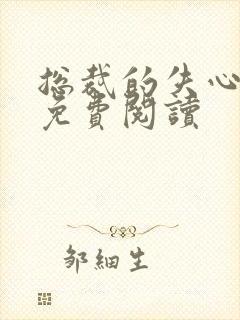 总裁的失心
免費閱讀
邹細生